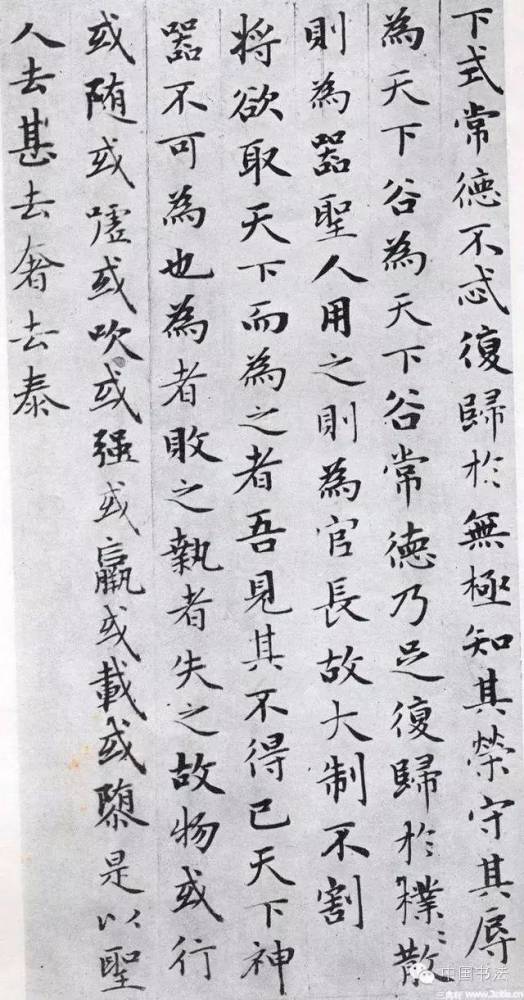 下式常德不忒復歸於無極知其榮守其辱
為天下谷為天下谷常德乃足復歸於樸〻散
則為器聖人用之則為官長故大制不割
將欲取天下而為之者吾見其不得已天下神
器不可為也為者敗之執者失之故物或行
或随或噓或吹或强或羸或載或隳是以聖
人去甚去奢去泰
中国书法